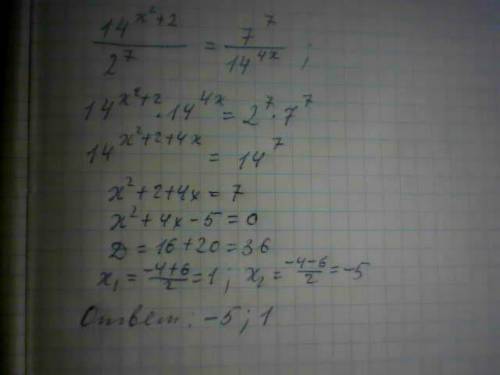 14^(x²+2) / 2^7 = 7^7 / 14^(4x) ;
14^(x²+2) · 14^(4x) = 2^7 · 7^7
14^(x²+2+4x) = 14^7
x²+2+4x = 7
x²+4x-5=0
D = 16+20=36
x₁ = (-4+6)/2 = 1 ; x₂ = (-4-6)/2 = -5
Ответ: -5; 1